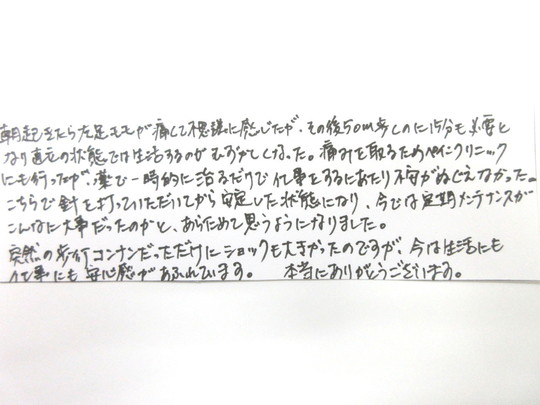 朝起きたら左足モモが痛くて不思議に感じたが、その後50m歩くのに15分も必要と
なり直立の状態では生活するのがむずかしくなった。痛みを取るためペインクリニック
にも行ったが、薬で一時的に治るだけで仕事をするにあたり不安がぬぐえなかった。
こちらで針を打っていただいてから安定した状態になり、今では定期メンテナンスが
こんなに大事だったのかと、あらためて思うようになりました。
突然の歩行コンナンだっただけにショックも大きかったのですが、今は生活にも
仕事にも安心感があふれています。 本当にありがとうございます。